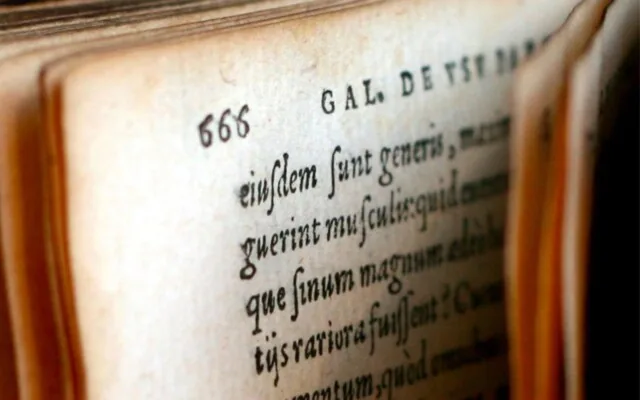 666 GAL. DE VSV PAR
eiuſdem ſunt generis, maxim
guerint muſculis: quid
que ſinum magnum
tijs rariora fuiſſent? Cum
mentum, quòd omnibus